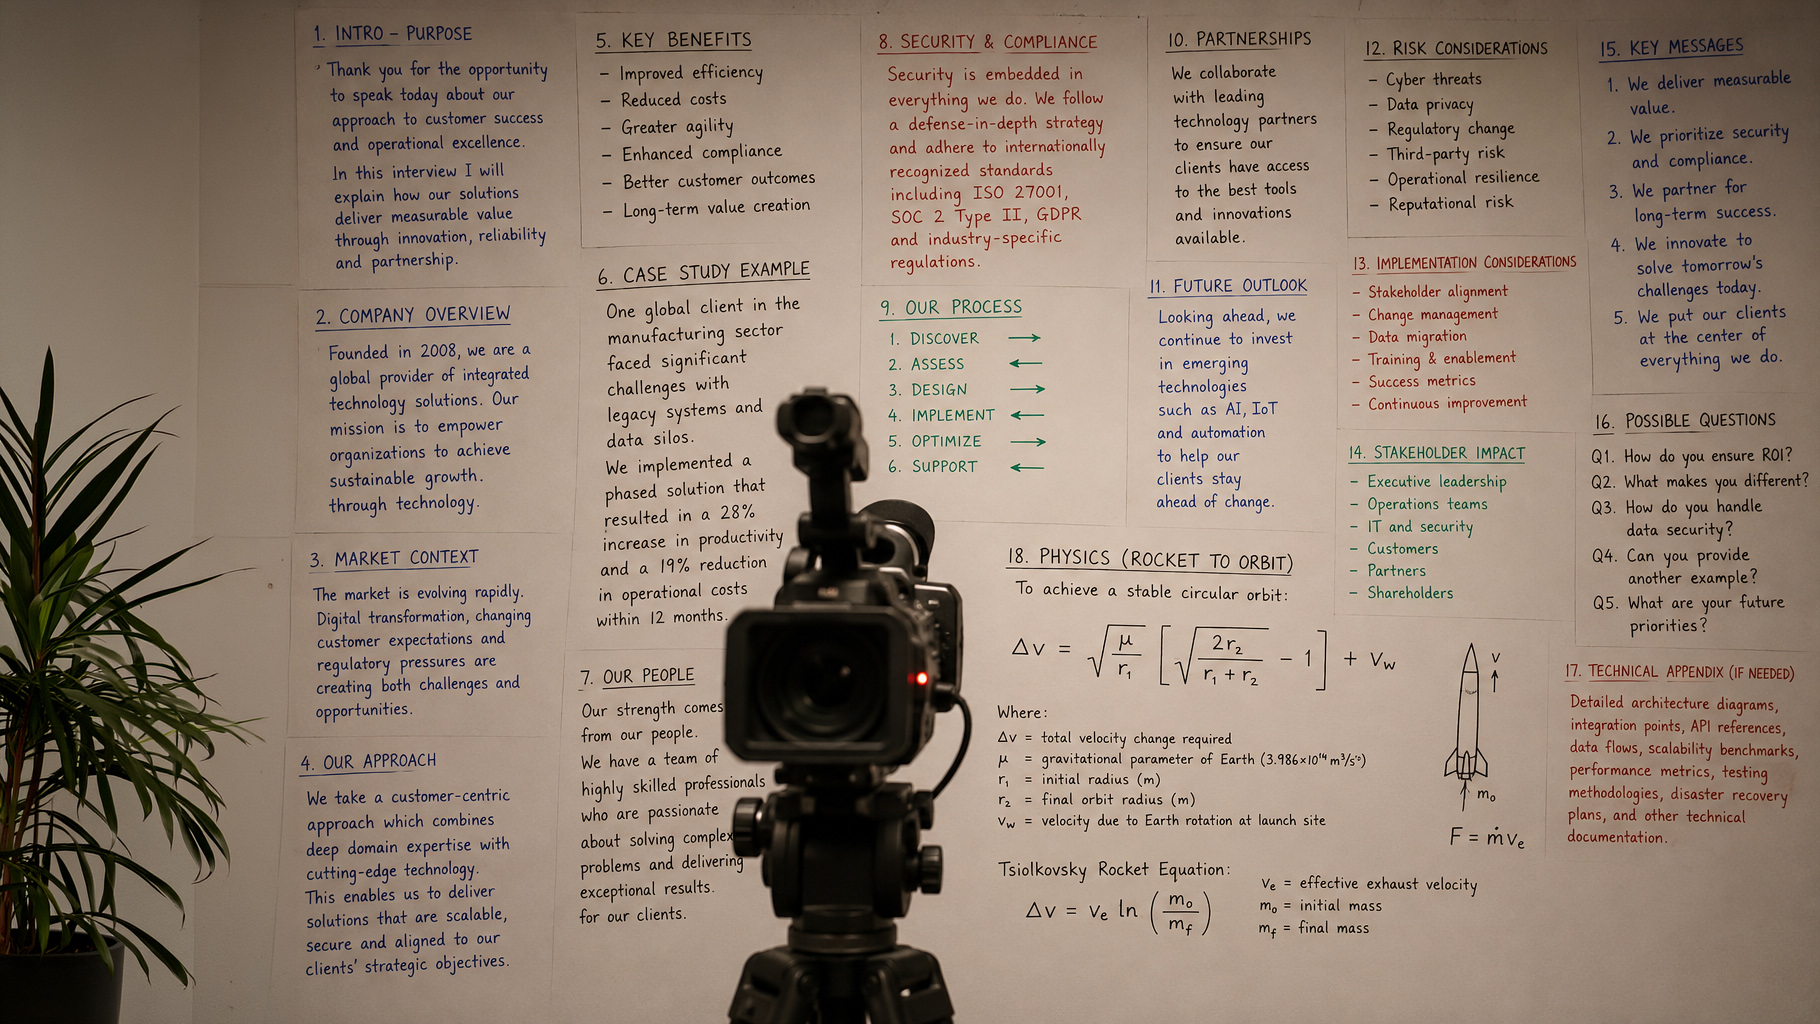 1. INTRO – PURPOSE
Thank you for the opportunity
to speak today about our
approach to customer success
and operational excellence.
In this interview I will
explain how our solutions
deliver measurable value
through innovation, reliability
and partnership.
2. COMPANY OVERVIEW
Founded in 2008, we are a
global provider of integrated
technology solutions. Our
mission is to empower
organizations to achieve
sustainable growth.
through technology.
3. MARKET CONTEXT
The market is evolving rapidly.
Digital transformation, changing
customer expectations and
regulatory pressures are
creating both challenges and
opportunities.
4. OUR APPROACH
We take a customer-centric
approach which combines
deep domain expertise with
cutting-edge technology.
This enables us to deliver
solutions that are scalable,
secure and aligned to our
clients' strategic objectives.
5. KEY BENEFITS
– Improved efficiency
– Reduced costs
– Greater agility
– Enhanced compliance
– Better customer outcomes
– Long-term value creation
6. CASE STUDY EXAMPLE
One global client in the
manufacturing sector
faced significant
challenges with
legacy systems and
data silos.
We implemented a
phased solution that
resulted in a 28%
increase in productivity
and a 19% reduction
in operational costs
within 12 months.
7. OUR PEOPLE
Our strength comes
from our people.
We have a team of
highly skilled professionals
who are passionate
about solving complex
problems and delivering
exceptional results.
for our clients.
8. SECURITY & COMPLIANCE
Security is embedded in
everything we do. We follow
a defense-in-depth strategy
and adhere to internationally
recognized standards
including ISO 27001,
SOC 2 Type II, GDPR
and industry-specific
regulations.
9. OUR PROCESS
1. DISCOVER →
2. ASSESS ←
3. DESIGN →
4. IMPLEMENT ←
5. OPTIMIZE →
6. SUPPORT ←
10. PARTNERSHIPS
We collaborate
with leading
technology partners
to ensure our
clients have access
to the best tools
and innovations
available.
11. FUTURE OUTLOOK
Looking ahead, we
continue to invest
in emerging
technologies
such as AI, IoT
and automation
to help our
clients stay
ahead of change.
12. RISK CONSIDERATIONS
– Cyber threats
– Data privacy
– Regulatory change
– Third-party risk
– Operational resilience
– Reputational risk
13. IMPLEMENTATION CONSIDERATIONS
– Stakeholder alignment
– Change management
– Data migration
– Training & enablement
– Success metrics
– Continuous improvement
14. STAKEHOLDER IMPACT
– Executive leadership
– Operations teams
– IT and security
– Customers
– Partners
– Shareholders
15. KEY MESSAGES
1. We deliver measurable
value.
2. We prioritize security
and compliance.
3. We partner for
long-term success.
4. We innovate to
solve tomorrow's
challenges today.
5. We put our clients
at the center of
everything we do.
16. POSSIBLE QUESTIONS
Q1. How do you ensure ROI?
Q2. What makes you different?
Q3. How do you handle
data security?
Q4. Can you provide
another example?
Q5. What are your future
priorities?
17. TECHNICAL APPENDIX (IF NEEDED)
Detailed architecture diagrams,
integration points, API references,
data flows, scalability benchmarks,
performance metrics, testing
methodologies, disaster recovery
plans, and other technical
documentation.
18. PHYSICS (ROCKET TO ORBIT)
To achieve a stable circular orbit:
Δv = √(μ/r₁) [√(2r₂/(r₁ + r₂)) − 1] + v_w
Where:
Δv = total velocity change required
μ = gravitational parameter of Earth (3.986×10¹⁴ m³/s
r₁ = initial radius (m)
r₂ = final orbit radius (m)
v_w = velocity due to Earth rotation at launch site
Tsiolkovsky Rocket Equation:
Δv = vₑ ln (m₀/m_f)
vₑ = effective exhaust velocity
m₀ = initial mass
m_f = final mass
v
m₀
F = ṁvₑ